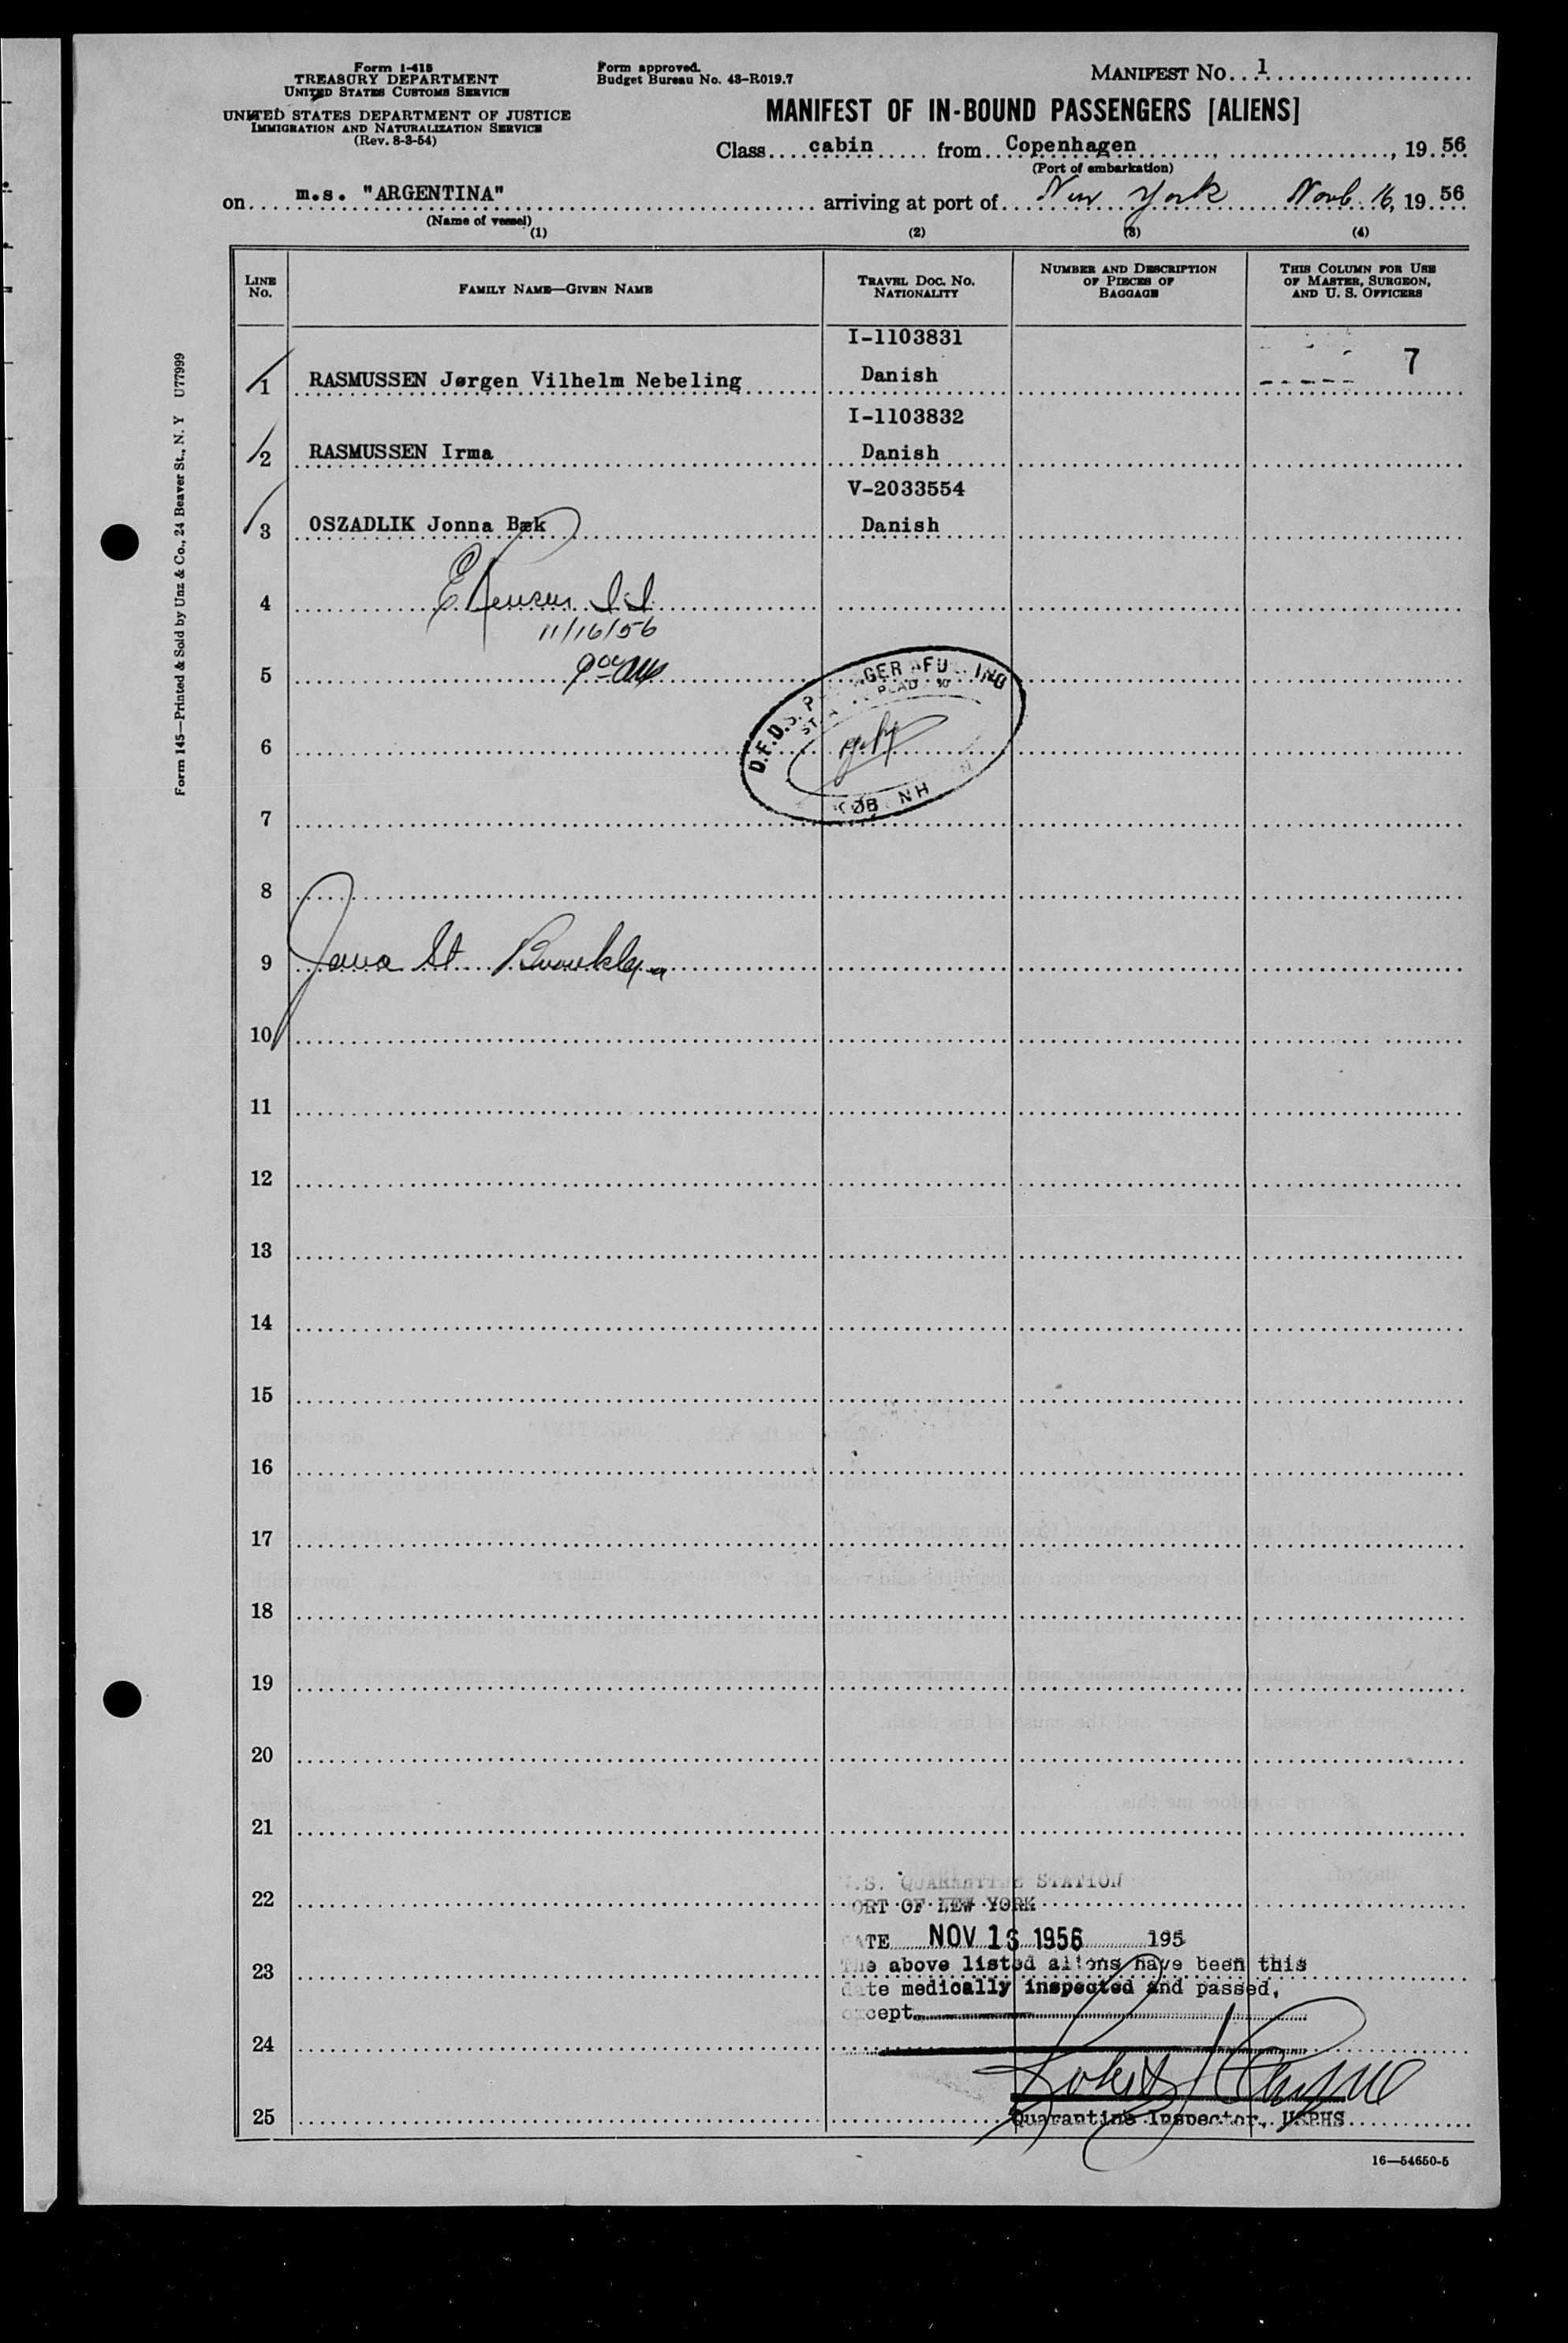 Form I-418
TREASURY DEPARTMENT
UNITED STATES CUSTOMS SERVICE
UNITED STATES DEPARTMENT OF JUSTICE
IMMIGRATION AND NATURALIZATION SERVICE
(Rev. 8-3-54)
Form approved.
Budget Bureau No. 43-R019.7
MANIFEST NO. 1
MANIFEST OF IN-BOUND PASSENGERS [ALIENS]
Class cabin from Copenhagen, 19 56
(Port of embarkation)
on m.s. "ARGENTINA" arriving at port of New York Novb. 16, 19 56
(Name of vessel)
(1) (2) (3) (4)
LINE NO. FAMILY NAME—GIVEN NAME TRAVEL DOC. NO. NATIONALITY NUMBER AND DESCRIPTION OF PIECES OF BAGGAGE THIS COLUMN FOR USE OF MASTER, SURGEON, AND U. S. OFFICERS
I-1103831
1 RASMUSSEN Jørgen Vilhelm Nebeling Danish 7
I-1103832
2 RASMUSSEN Irma Danish
V-2033554
3 OSZADLIK Jonna Bæk Danish
4
11/16/56
5
D.F.D.S.
6
7
8
9 Java St Brooklyn
10
11
12
13
14
15
16
17
18
19
20
21
U.S. QUARANTINE STATION
22 PORT OF NEW YORK
DATE NOV 16 1956 195
The above listed aliens have been this
23
date medically inspected and passed,
except
24
25 Quarantine Inspector, USPHS
16—54650-5
Form 145—Printed & Sold by Unz & Co., 24 Beaver St., N. Y U77999